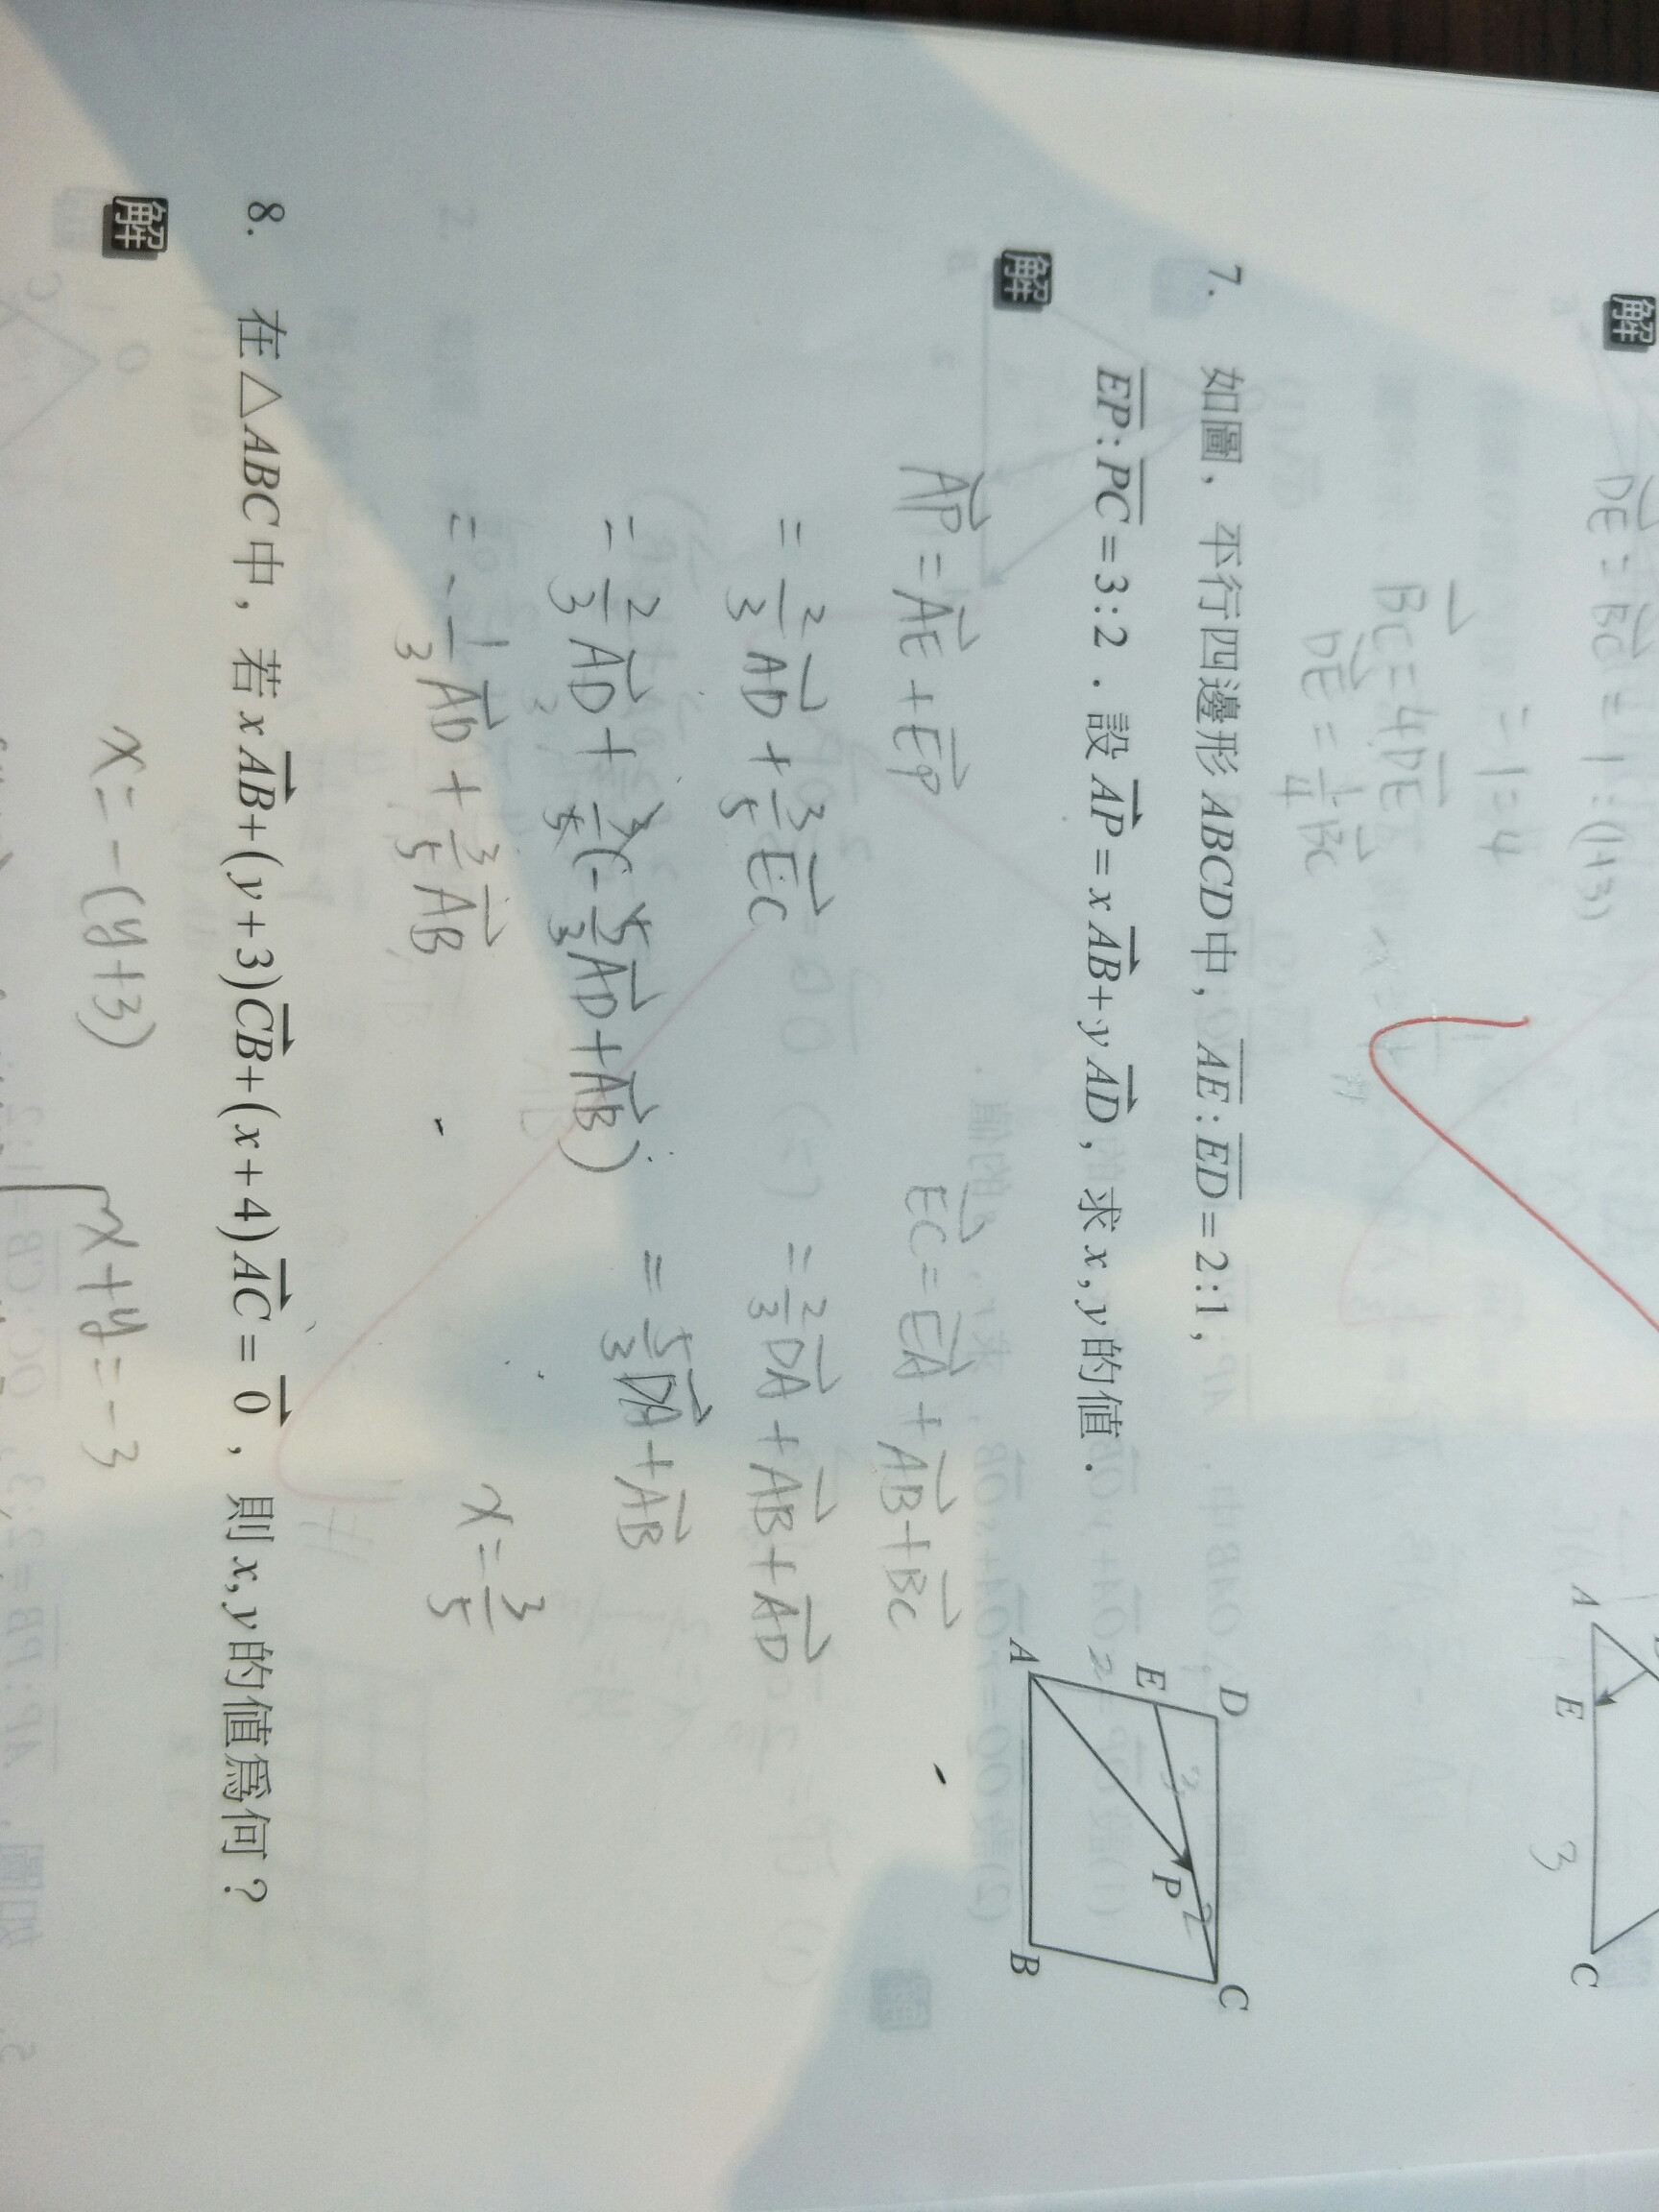 解
DE : BC = 1 : (1+3)
= 1 = 4
BC = 4DE
DE = 1/4 BC
A
E
C
3
7. 如圖，平行四邊形 ABCD 中，AE : ED = 2 : 1，
EP : PC = 3 : 2．設 AP = x AB + y AD，求 x, y 的值．
D
E
A
P
B
C
3
2
解
AP = AE + EP
= 2/3 AD + 3/5 EC
= 2/3 AD + 3/5 (-5/3 AD + AB)
= -1/3 AD + 3/5 AB
EC = EA + AB + BC
= 2/3 DA + AB + AD
= 5/3 DA + AB
x = 3/5
8. 在 △ABC 中，若 x AB + (y + 3) CB + (x + 4) AC = 0，則 x, y 的值為何？
解
x = -(y+3)
x + y = -3